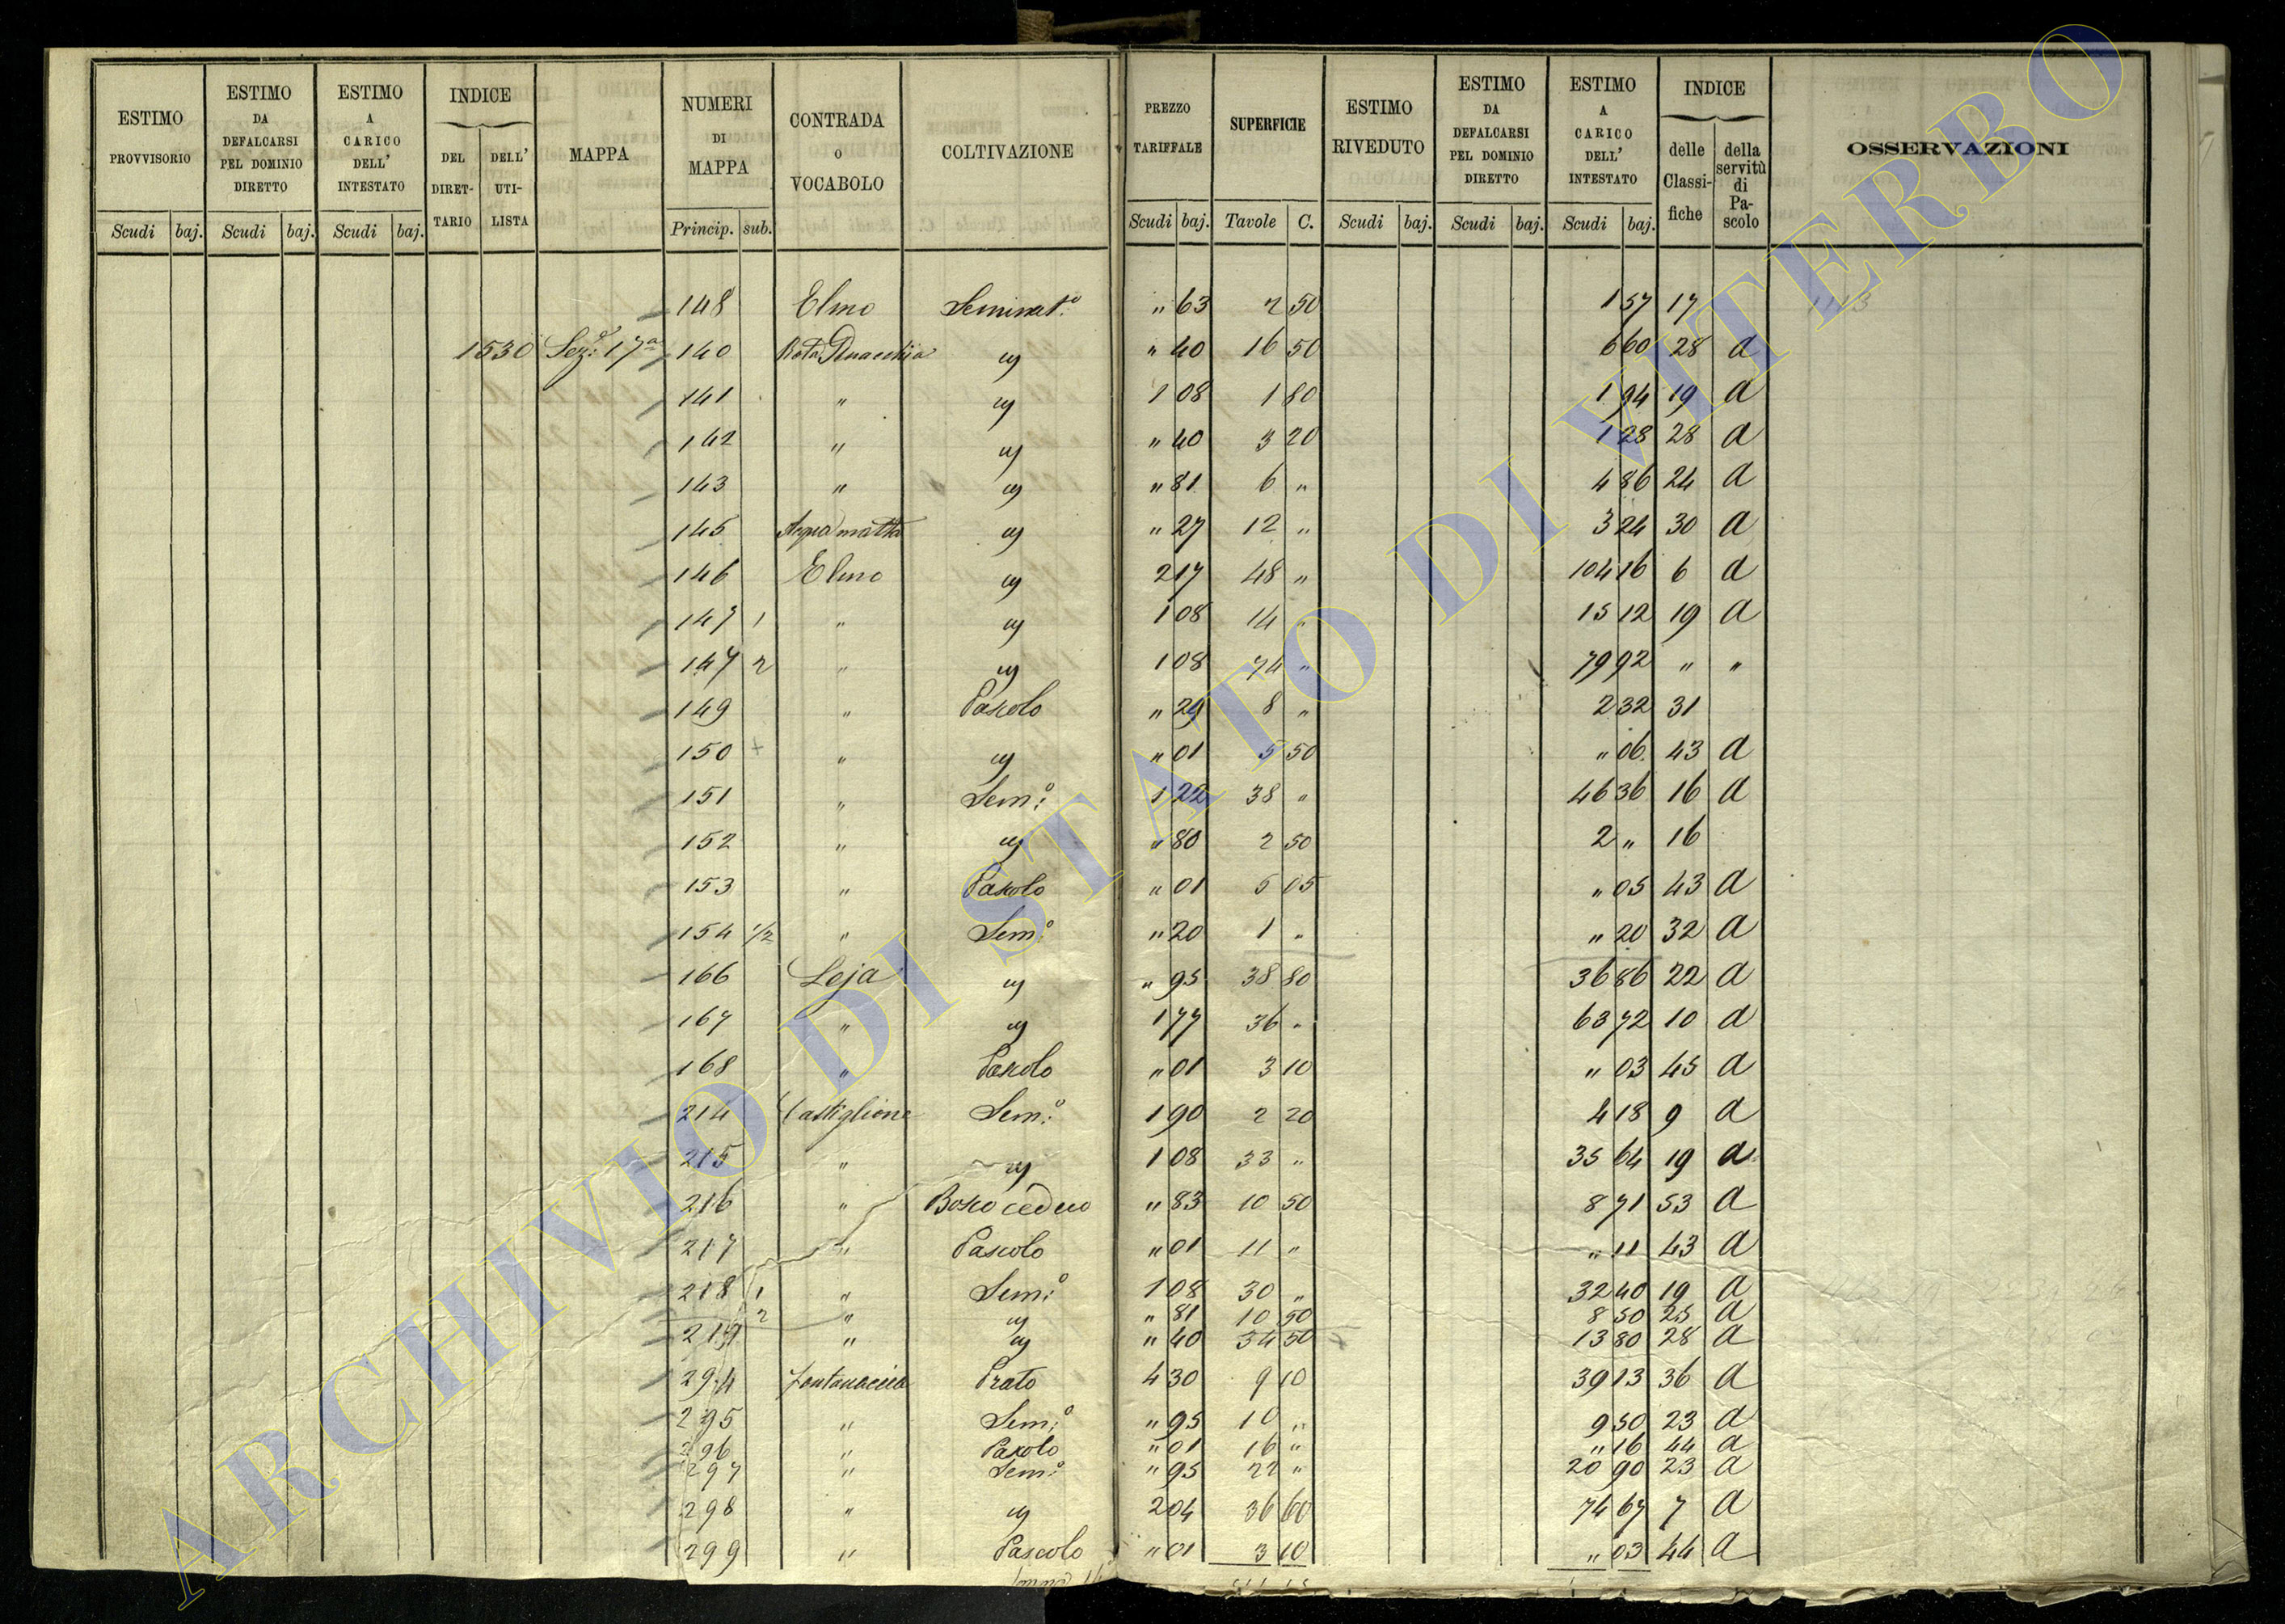 ESTIMO PROVVISORIO
ESTIMO DA DEFALCARSI PEL DOMINIO DIRETTO
ESTIMO A CARICO DELL' INTESTATO
INDICE
DEL DIRET-TARIO
DELL' UTI-LISTA
MAPPA
NUMERI DI MAPPA
CONTRADA O VOCABOLO
COLTIVAZIONE
PREZZO TARIFFALE
SUPERFICIE
ESTIMO RIVEDUTO
ESTIMO DA DEFALCARSI PEL DOMINIO DIRETTO
ESTIMO A CARICO DELL' INTESTATO
INDICE
delle Classi-fiche
della servitù di Pa-scolo
OSSERVAZIONI
Scudi baj. Scudi baj. Scudi baj. Princip. sub. Scudi baj. Tavole C. Scudi baj. Scudi baj. Scudi baj.
148 Elmo Seminat.º " 63 2 50 1 57 17
1530 Sez.e 17a 140 " 40 16 50 6 60 28 a
141 " 1 08 1 80 1 94 19 a
142 " " 40 3 20 1 28 28 a
143 " " 81 6 " 4 86 24 a
145 Acqua matta " 27 12 " 3 24 30 a
146 Elmo 2 17 48 " 104 16 6 a
147 1 " 1 08 14 " 15 12 19 a
147 2 " 1 08 74 " 79 92 " "
149 " Pascolo " 29 8 " 2 32 31
150 + " " 01 5 50 " 06 43 a
151 " Sem:º 1 22 38 " 46 36 16 a
152 " " 80 2 50 2 " 16
153 " Pascolo " 01 5 05 " 05 43 a
154 1/2 " Sem:º " 20 1 " " 20 32 a
166 Leja " 95 38 80 36 86 22 a
167 " 1 77 36 " 63 72 10 a
168 " Pascolo " 01 3 10 " 03 45 a
214 Castiglione Sem:º 1 90 2 20 4 18 9 a
215 " 1 08 33 " 35 64 19 a
216 " Bosco ceduo " 83 10 50 8 71 53 a
217 " Pascolo " 01 11 " " 11 43 a
218 1 " Sem:º 1 08 30 " 32 40 19 a
2 " " 81 10 50 8 50 25 a
219 " " 40 34 50 13 80 28 a
294 Fontanaccia Prato 4 30 9 10 39 13 36 a
295 " Sem:º " 95 10 " 9 50 23 a
296 " Pascolo " 01 16 " " 16 44 a
297 " Sem:º " 95 22 " 20 90 23 a
298 " 2 04 36 60 74 67 7 a
299 " Pascolo " 01 3 10 " 03 44 a
ARCHIVIO DI STATO DI VITERBO